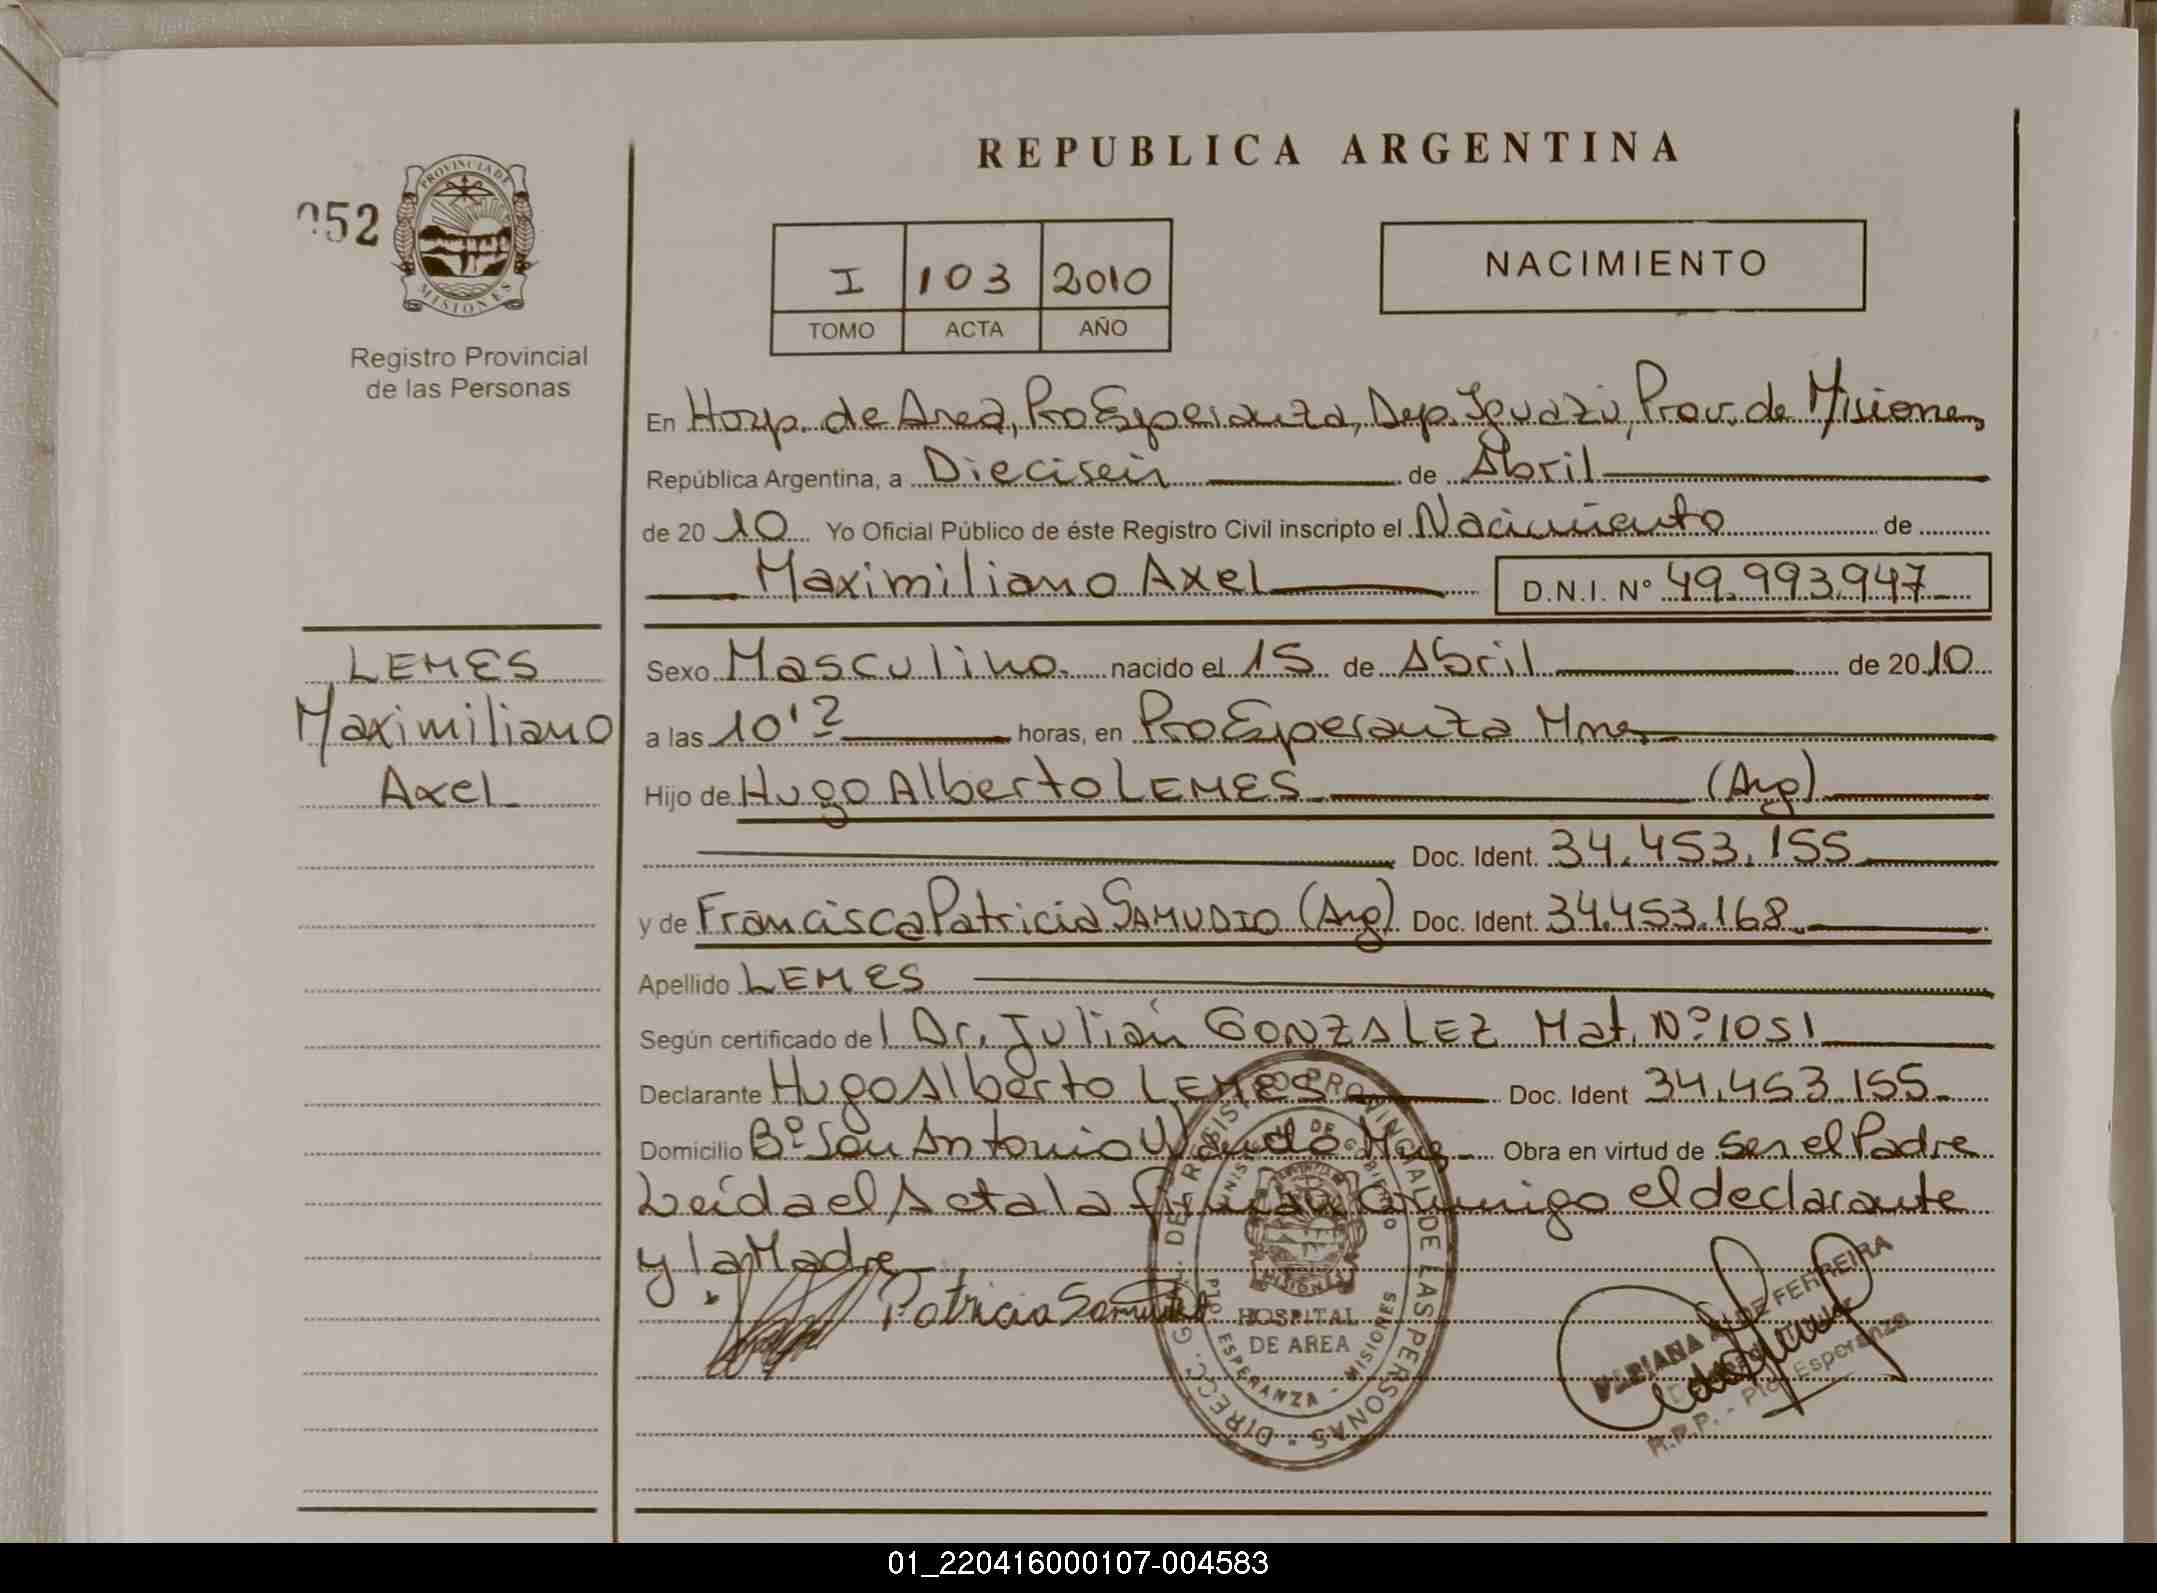 REPUBLICA ARGENTINA
052
PROVINCIA DE
MISIONES
Registro Provincial
de las Personas
I 103 2010
TOMO ACTA AÑO
NACIMIENTO
En Hosp. de Area, Pto Esperanza, Dep. Iguazú, Prov. de Misiones
República Argentina, a Dieciseis de Abril
de 2010 Yo Oficial Público de éste Registro Civil inscripto el Nacimiento de
Maximiliano Axel D.N.I. Nº 49.993.947
LEMES
Maximiliano
Axel
Sexo Masculino nacido el 15 de Abril de 2010
a las 10' horas, en Pto Esperanza Mnes
Hijo de Hugo Alberto LEMES (Arg)
Doc. Ident. 34.453.155
y de Francisca Patricia SAMUDIO (Arg) Doc. Ident. 34.453.168
Apellido LEMES
Según certificado del Dr. Julián GONZALEZ Mat. Nº 1051
Declarante Hugo Alberto LEMES Doc. Ident 34.453.155
Domicilio Bº San Antonio Wanda Obra en virtud de ser el Padre
Leída el Acta la firman conmigo el declarante
y la Madre
Patricia Samudio
DIRECC. G. DEL REGISTRO PROVINCIAL DE LAS PERSONAS
MINISTERIO DE GOBIERNO
MISIONES
HOSPITAL
DE AREA
PTO. ESPERANZA - MISIONES
DE FERREIRA
R.P.P. - Pto. Esperanza
01_220416000107-004583